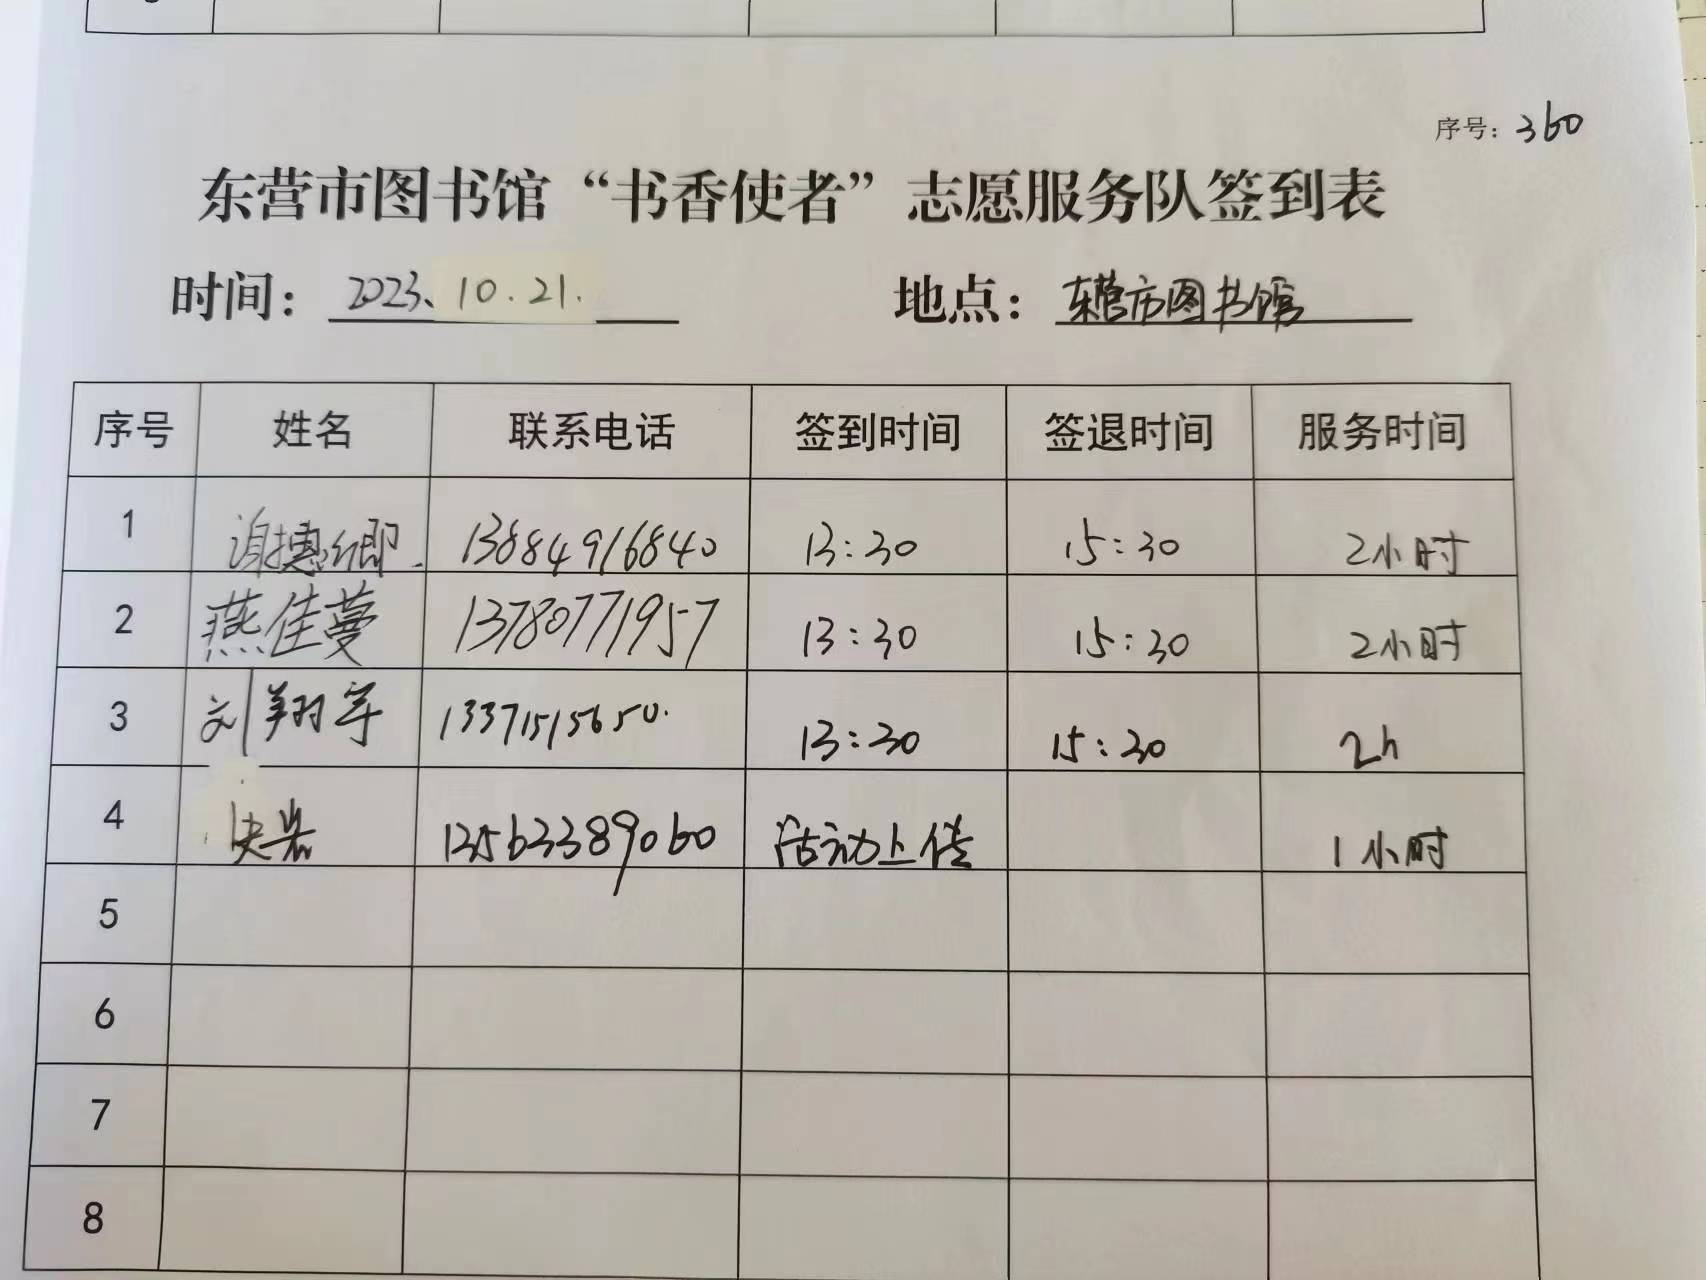 序号：360
东营市图书馆“书香使者”志愿服务队签到表
时间：2023、10.21. 地点：东营市图书馆
序号 姓名 联系电话 签到时间 签退时间 服务时间
1 13884916840 13:30 15:30 2小时
2 燕佳蔓 13780771957 13:30 15:30 2小时
3 刘翔宇 13371515650. 13:30 15:30 2h
4 13563389060 活动上传 1小时
5
6
7
8